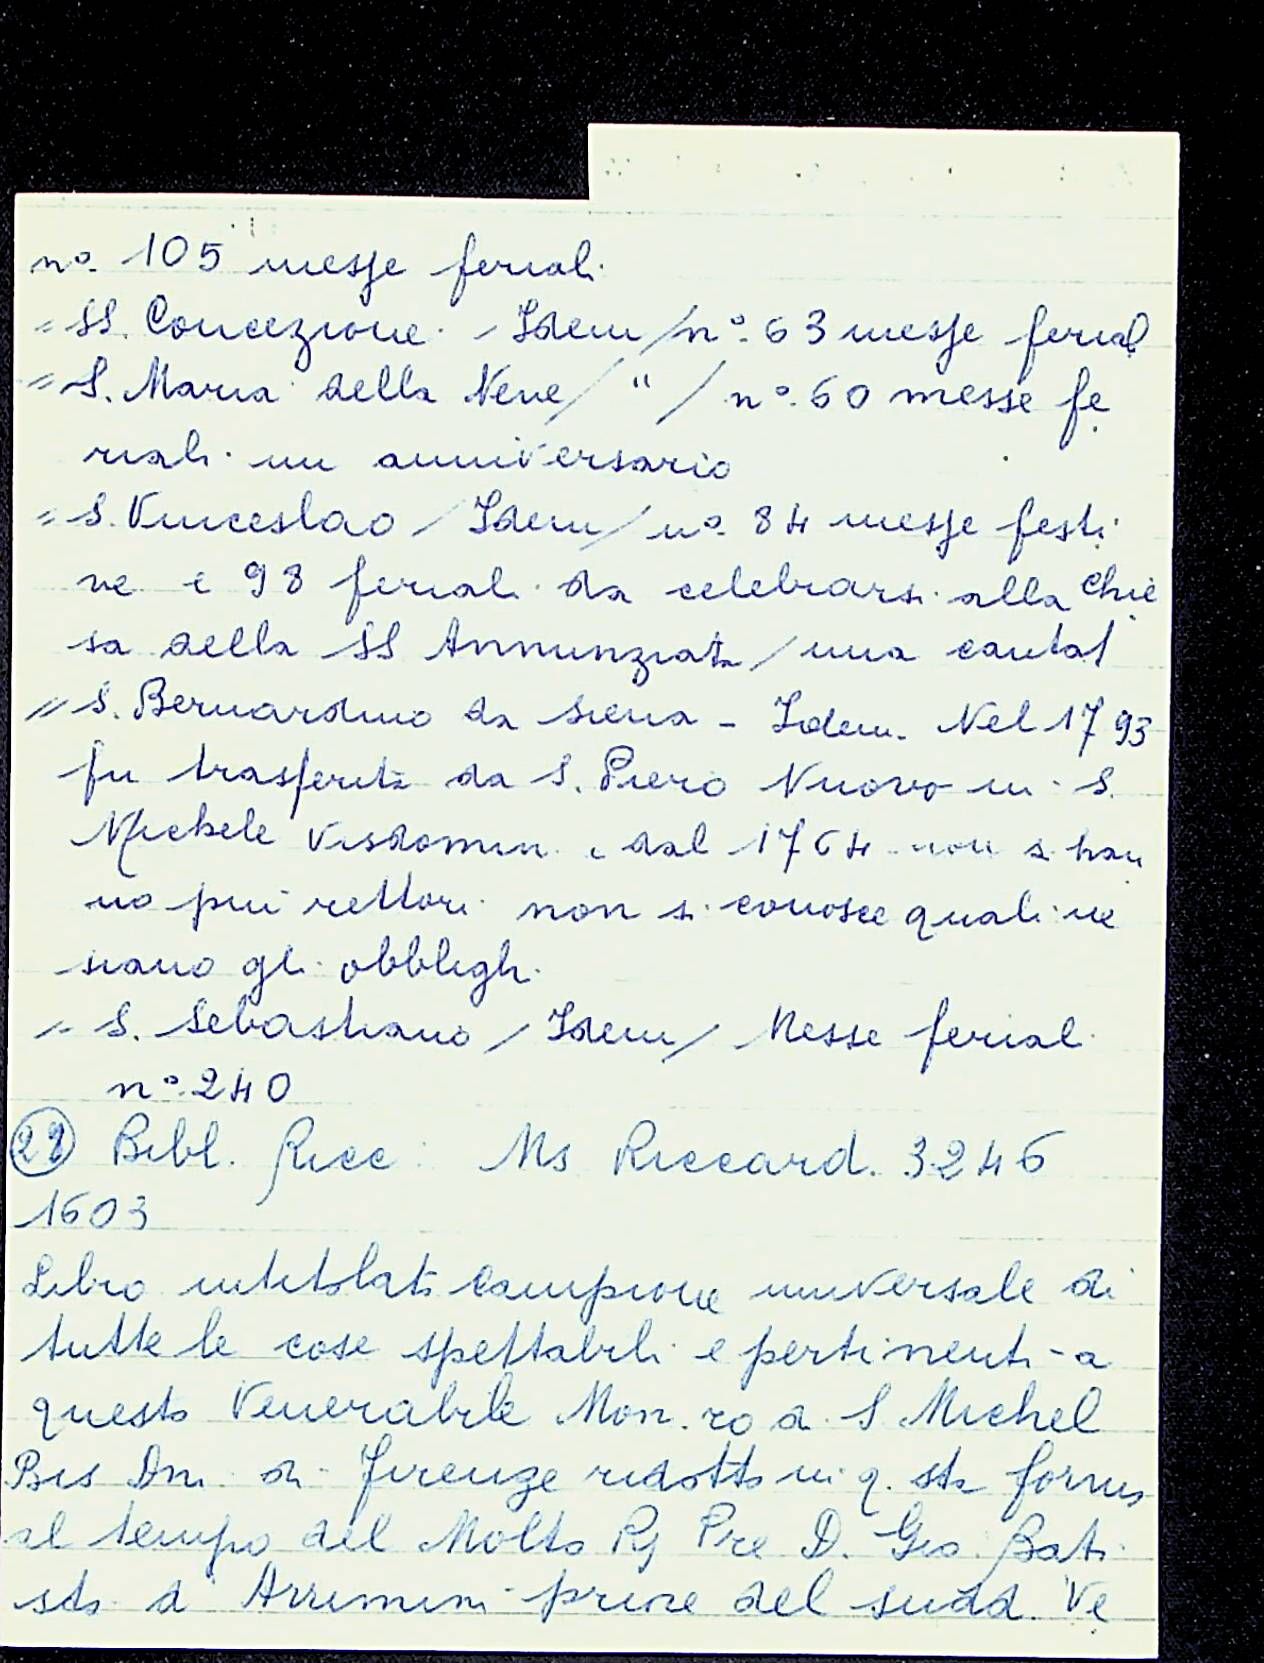 n°. 105 messe feriali.
" SS. Concezione. / Idem / n°. 63 messe ferial
" S. Maria della Neve / " / n°. 60 messe fe
riali. un anniversario
" S. Vinceslao / Idem / n°. 84 messe festi
ve e 98 feriali da celebrarsi alla Chie
sa della SS Annunziata / una cantat
" S. Bernardino da Siena - Idem. Nel 1793
fu trasferita da S. Piero Nuovo in S.
Michele Visdomini e dal 1764 non si han
no più rettori non si conosce quali ne
siano gli obblighi.
" S. Sebastiano / Idem / Messe feriali
n°. 240
Bibl. Ricc: Ms Riccard. 3246
1603
Libro intitolato Campione universale di
tutte le cose spettabili e pertinenti a
questo Venerabile Mon.ro di S Michel
Bis Dni di Firenze ridotto in q.sta forma
al tempo del Molto Rj Pre D. Gio. Bati
sta d Arrimini priore del sudd. Ve